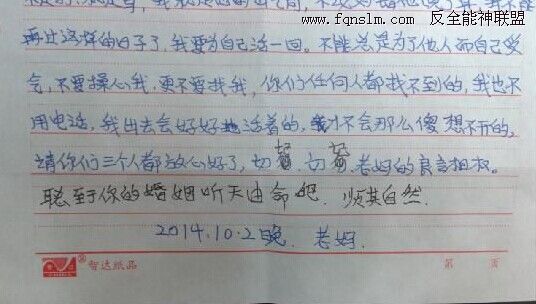 www.fqnslm.com 反全能神联盟
再过这样的日子了,我要为自己活一回。不能总是为了他人而自己受
气,不要操心我,更不要找我,你们任何人都找不到的,我也不
用电话,我出去会好好地活着的,我才不会那么傻想不开的,
请你们三个人都放心好了,切努 切努,老妈的良言相权。
聪至于你的婚姻听天由命吧.顺其自然.
2014.10.2晚. 老妈.
智达纸品
第 页